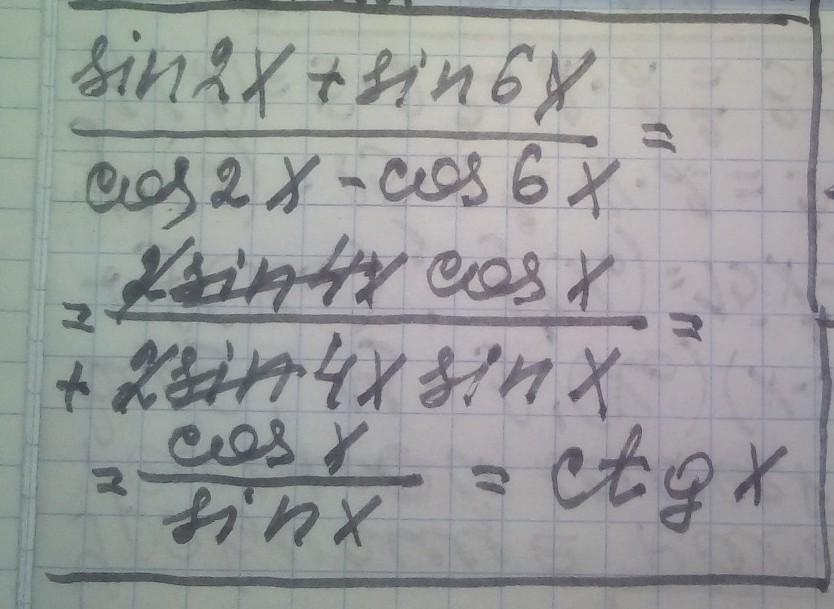 sin2x + sin6x
=
cos2x - cos6x
2sin4x cos x
= =
+ 2sin4x sin x
cos x
= = ctg x
sin x